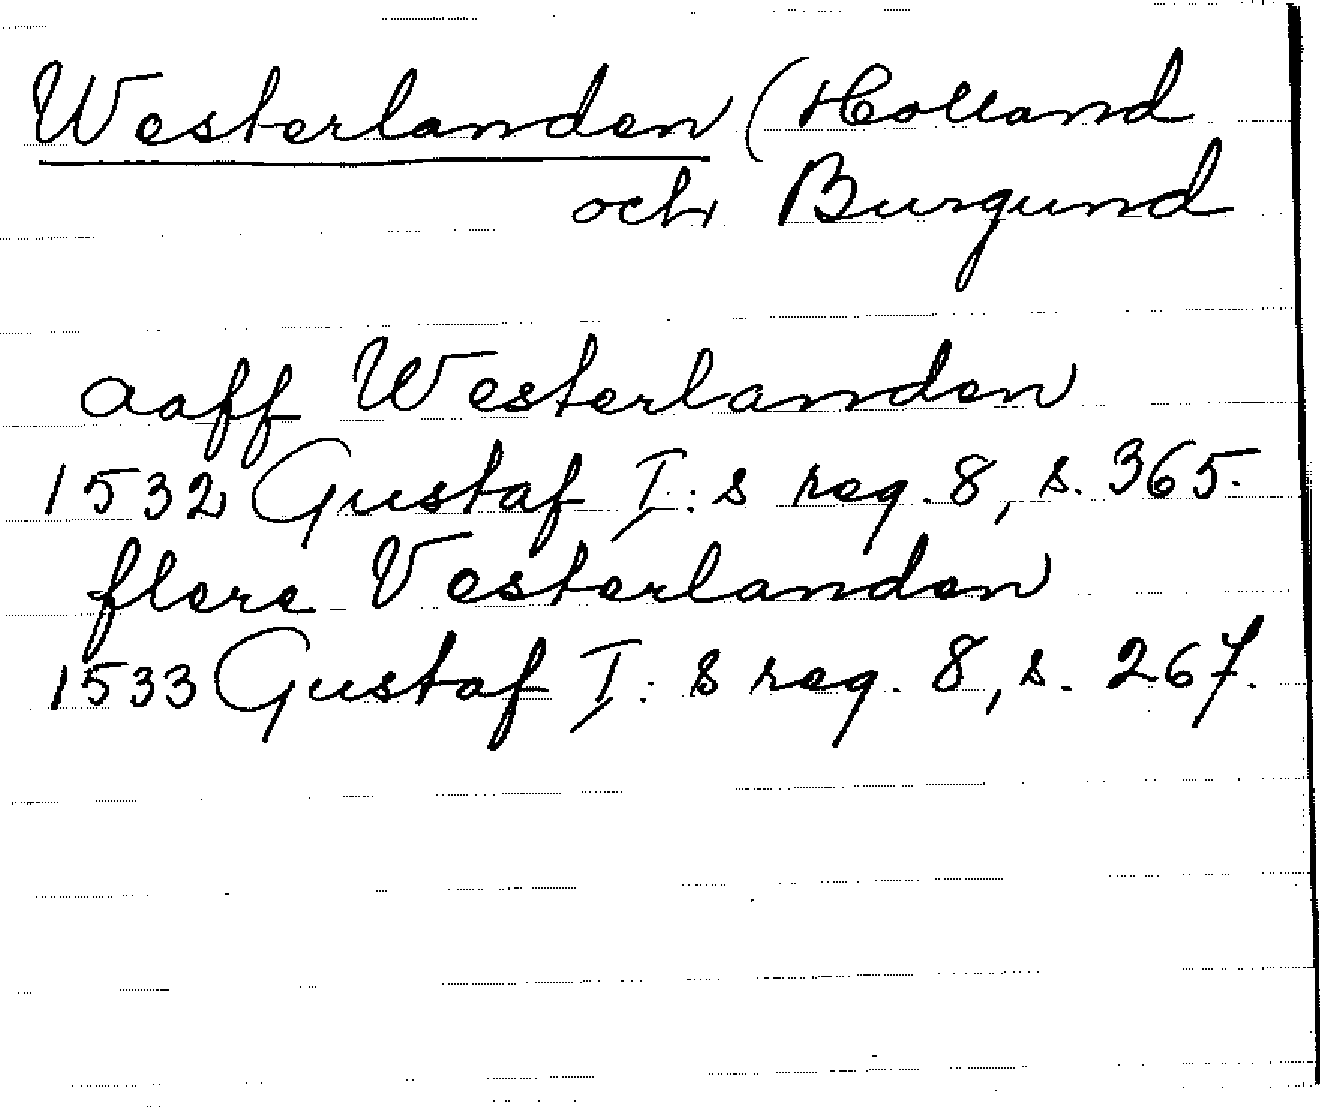 Westerlanden (Holland
och Burgund
aaff Westerlanden
1532 Gustaf I: s reg. 8, s. 365.
flere Vesterlanden
1533 Gustaf I: s reg. 8, s. 267.